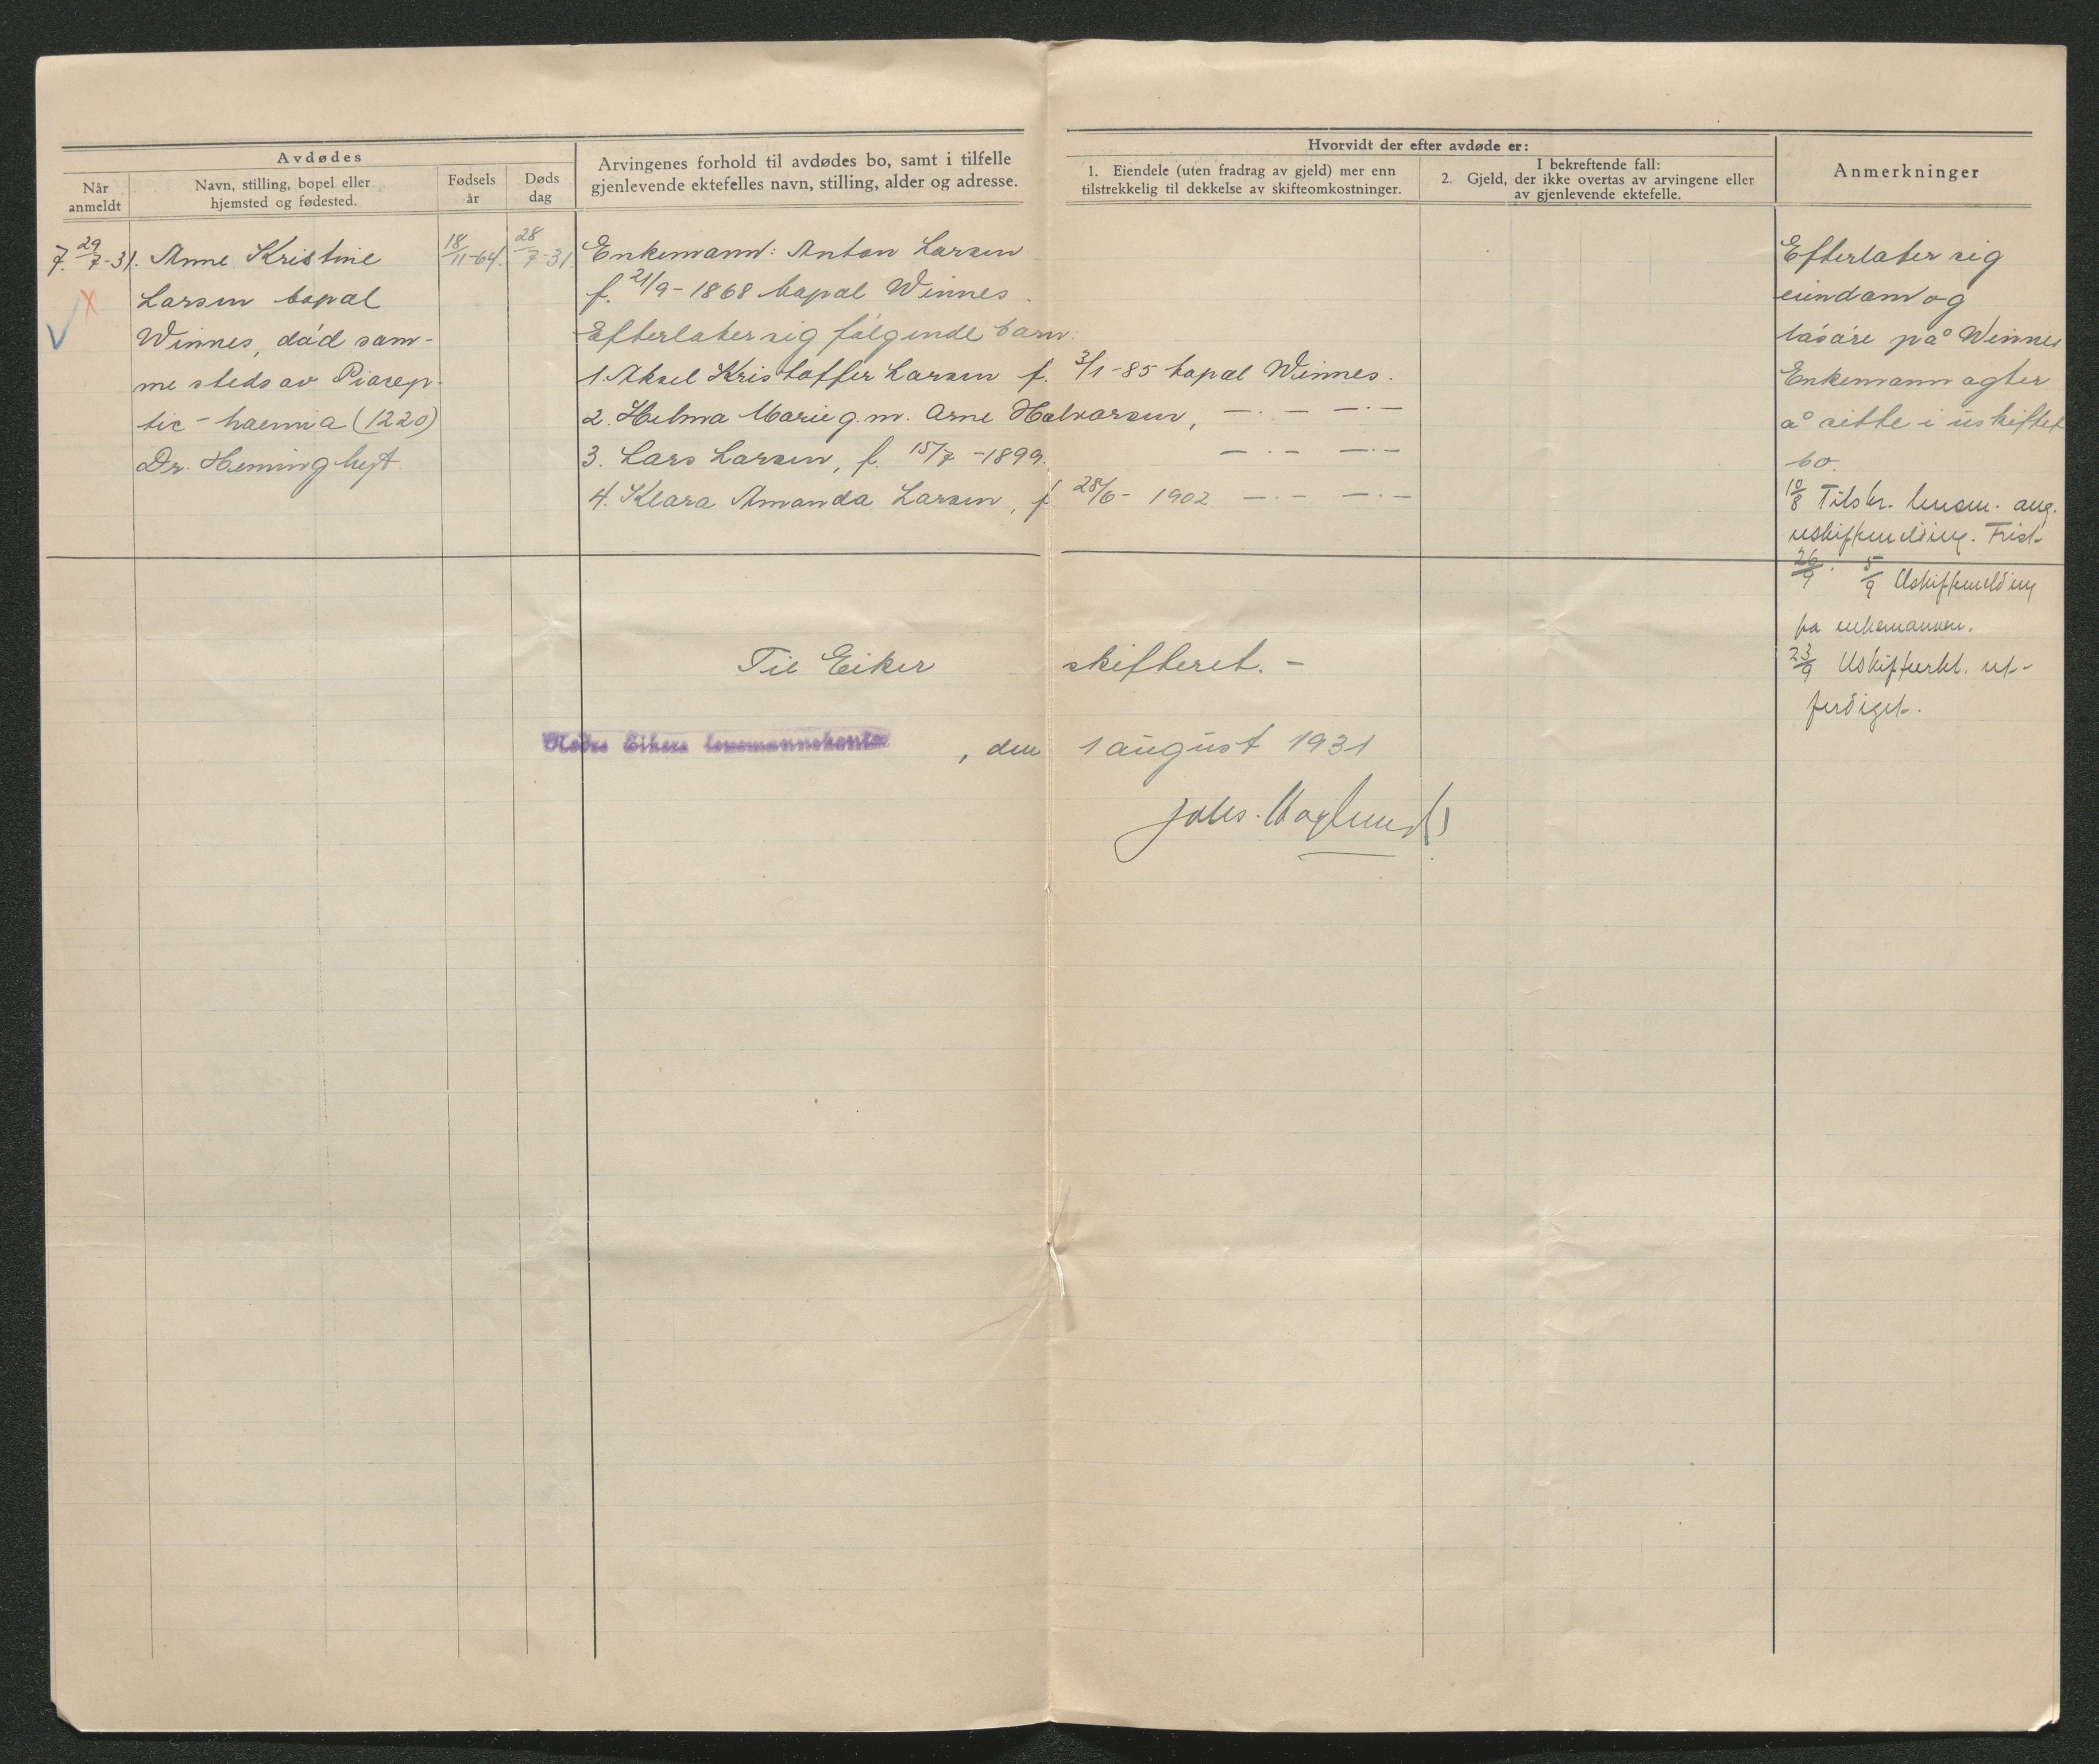 Avdødes
Når anmeldt
Navn, stilling, bopel eller hjemsted og fødested.
Fødsels år
Døds dag
Arvingenes forhold til avdødes bo, samt i tilfelle
gjenlevende ektefelles navn, stilling, alder og adresse.
Hvorvidt der efter avdøde er:
1. Eiendele (uten fradrag av gjeld) mer enn
tilstrekkelig til dekkelse av skifteomkostninger.
I bekreftende fall:
2. Gjeld, der ikke overtas av arvingene eller
av gjenlevende ektefelle.
Anmerkninger
7. 29/7-31.
Anne Kristine
Larsen bopæl
Winnes, død sam-
me steds av
tic-haemia (1220)
Dr. Heming
18/11-64.
28/7-31.
Enkemann: Anton Larsen
f. 21/9-1868 bopæl Winnes.
Efterlater sig følgende barn:
1. Aksel Kristoffer Larsen f. 3/1-85 bopæl Winnes.
2. Helma Marie g.m. Arne Halvorsen, —.— —.—
3. Lars Larsen, f. 15/7-1899. —.— —.—
4. Klara Amanda Larsen, f. 28/6-1902 —.— —.—
Efterlater sig
eiendom og
løsøre på Winnes
Enkemann agter
å sitte i uskiftet
bo.
10/8 Tilskr. lensm. ang.
uskiftemelding. Frist
26/9. 5/9 Uskiftemelding
fra enkemannen.
23/9 Uskifteerkl. ut-
ferdiget.
Til Eiker skifteret. -
Nedre Eikers lensmannskontor, den 1 august 1931